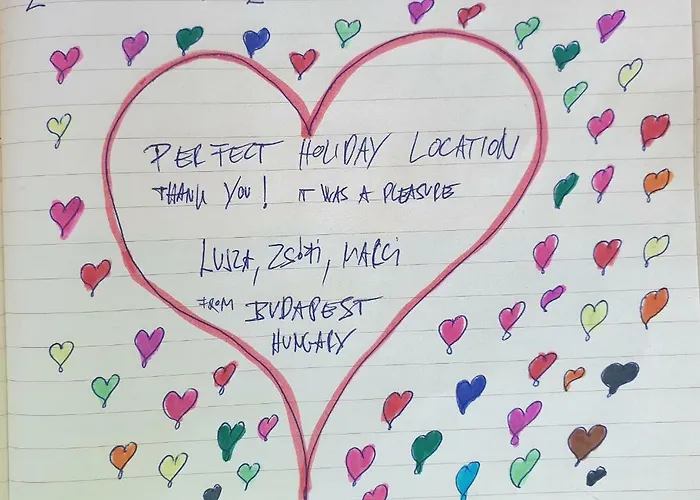 PERFECT HOLIDAY LOCATION
THANK YOU! IT WAS A PLEASURE
LUJZA, ZSÓFI, MARCI
FROM BUDAPEST
HUNGARY